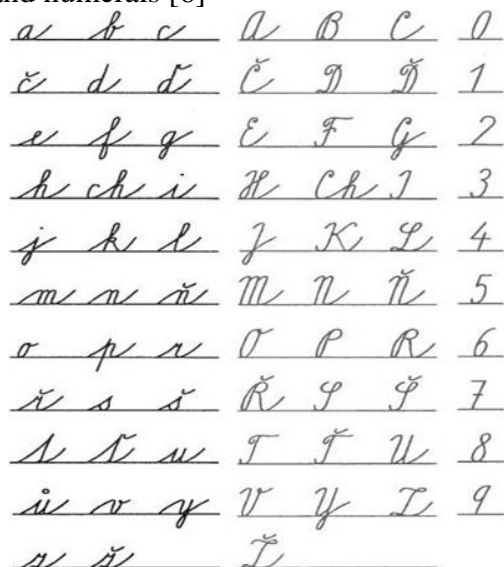 and numerals [6]
a b c A B C 0
č d ď Č D Ď 1
e f g E F G 2
h ch i H Ch I 3
j k l J K L 4
m n ň M N Ň 5
o p r O P R 6
ř s š Ř S Š 7
t ť u T Ť U 8
ů v y V Y Z 9
z ž Ž